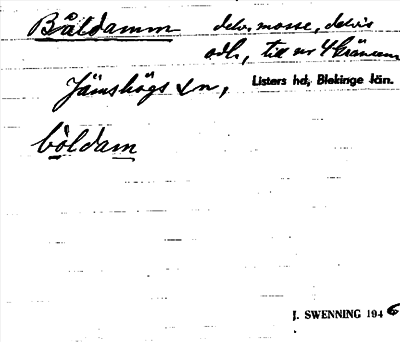 Båldamm delv. mosse, delvis
odl., till nr 4
Jämshögs sn, Listers hd, Blekinge län.
bòldam
J. SWENNING 1946